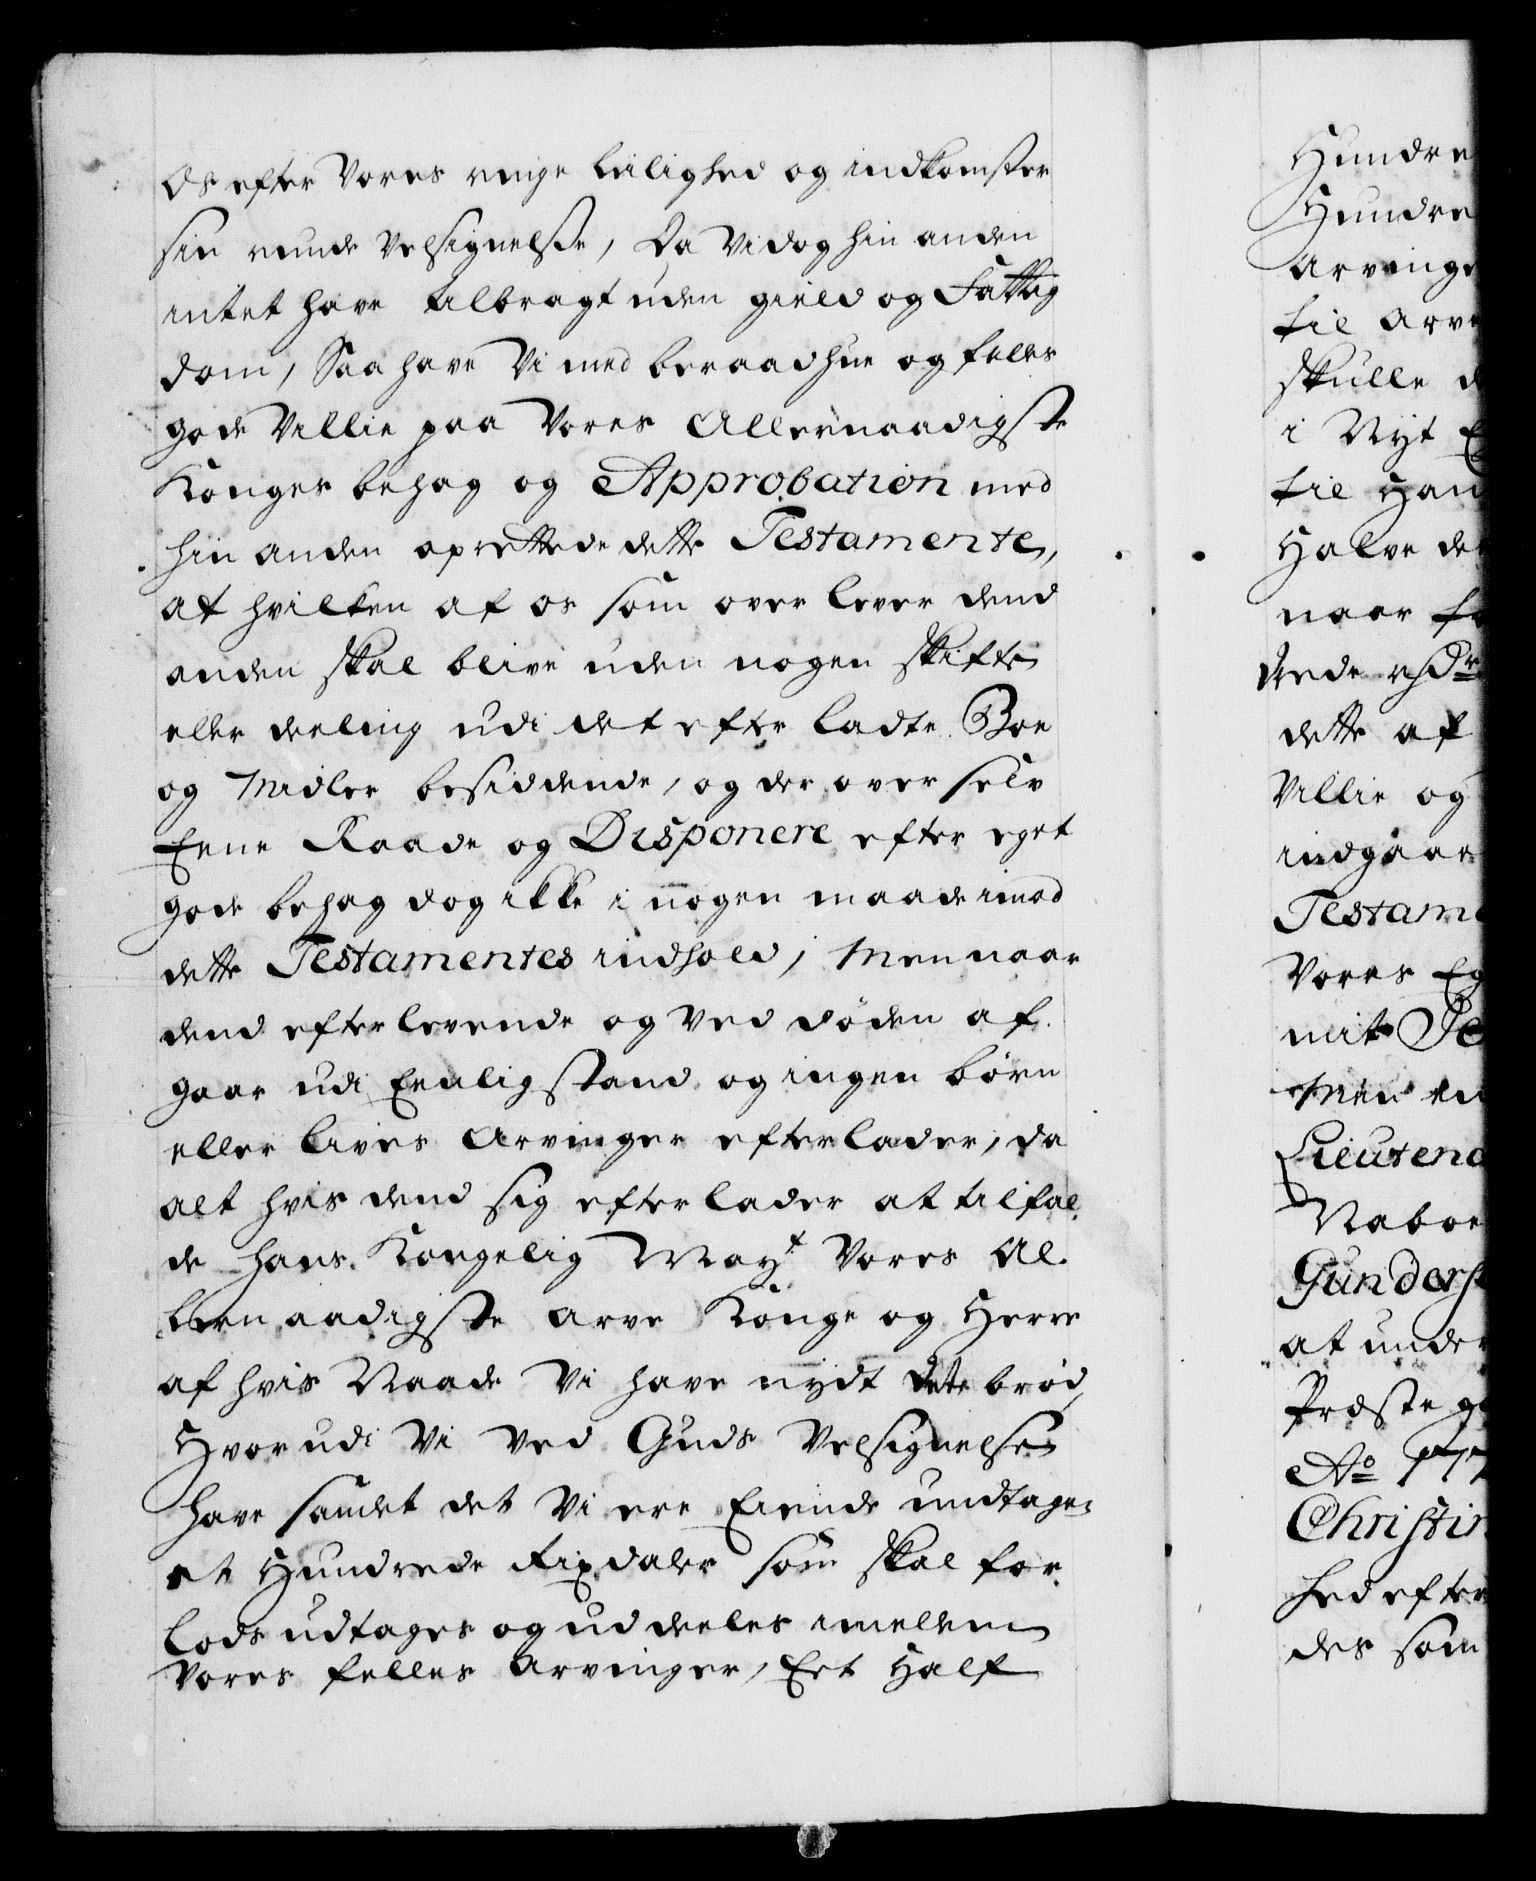 Os efter Vores ringe leilighed og indkomster
sin runde Velsignelse, Da Vi dog hin anden
intet have tilbragt uden gield og Fattig
dom, Saa have Vi med beraad hue og felles
gode Villie paa Vores Allernaadigste
Konges behag og Approbation med
hin anden oprettede dette Testamente,
at hvilken af os som over lever dend
anden skal blive uden nogen skifte
eller deeling udi det efter ladte Boe
og Midler besiddende, og der over selv
Eene Raade og Disponere efter eget
gode behag dog ikke i nogen maade imod
dette Testamentes indhold, Men naar
dend efter levende og ved døden af
gaar udi Eenlig stand og ingen børn
eller livs Arvinger efterlader, da
alt hvis dend sig efterlader at tilfal
de hans Kongelig Mayt Vores Al
lernaadigste arve Konge og Herre
af hvis Naade Vi have nydt dete brød,
Hvor udi Vi ved Guds Velsignelse
have samlet det Vi ere Eiende undtagen
et Hundrede Rixdaler som skal for
lods udtages og uddeeles imellem
Vores felles Arvinger, Eet Half
Hundre
Hundre
Arvinge
til Arve
skulle d
i Nyt E
til Han
Halve de
naar fo
rede rdr
dette af
Villie og
indgaar
Testame
Vores Eg
mit Pe
Min en
Lieutena
Naboe
Gunders
at under
Præste ga
Ao 177
Christin
hed efter
des som